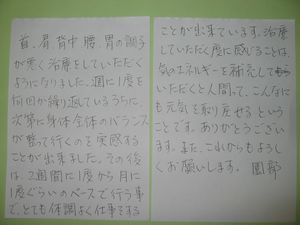 首、肩、背中、腰、胃の調子
が悪く治療をしていただく
ようになりました。週に1度を
何回か繰り返しているうちに、
次第に身体全体のバランス
が整って行くのを実感する
ことが出来ました。その後
は、2週間に1度から月に
1度ぐらいのペースで行う事
で、とても体調よく仕事をする
ことが出来ています。治療
していただく度に感じることは、
気のエネルギーを補充して
いただくと人間って、こんなに
も元気を取り戻せるという
ことです。ありがとうござい
ます。また、これからもよろし
くお願いします。